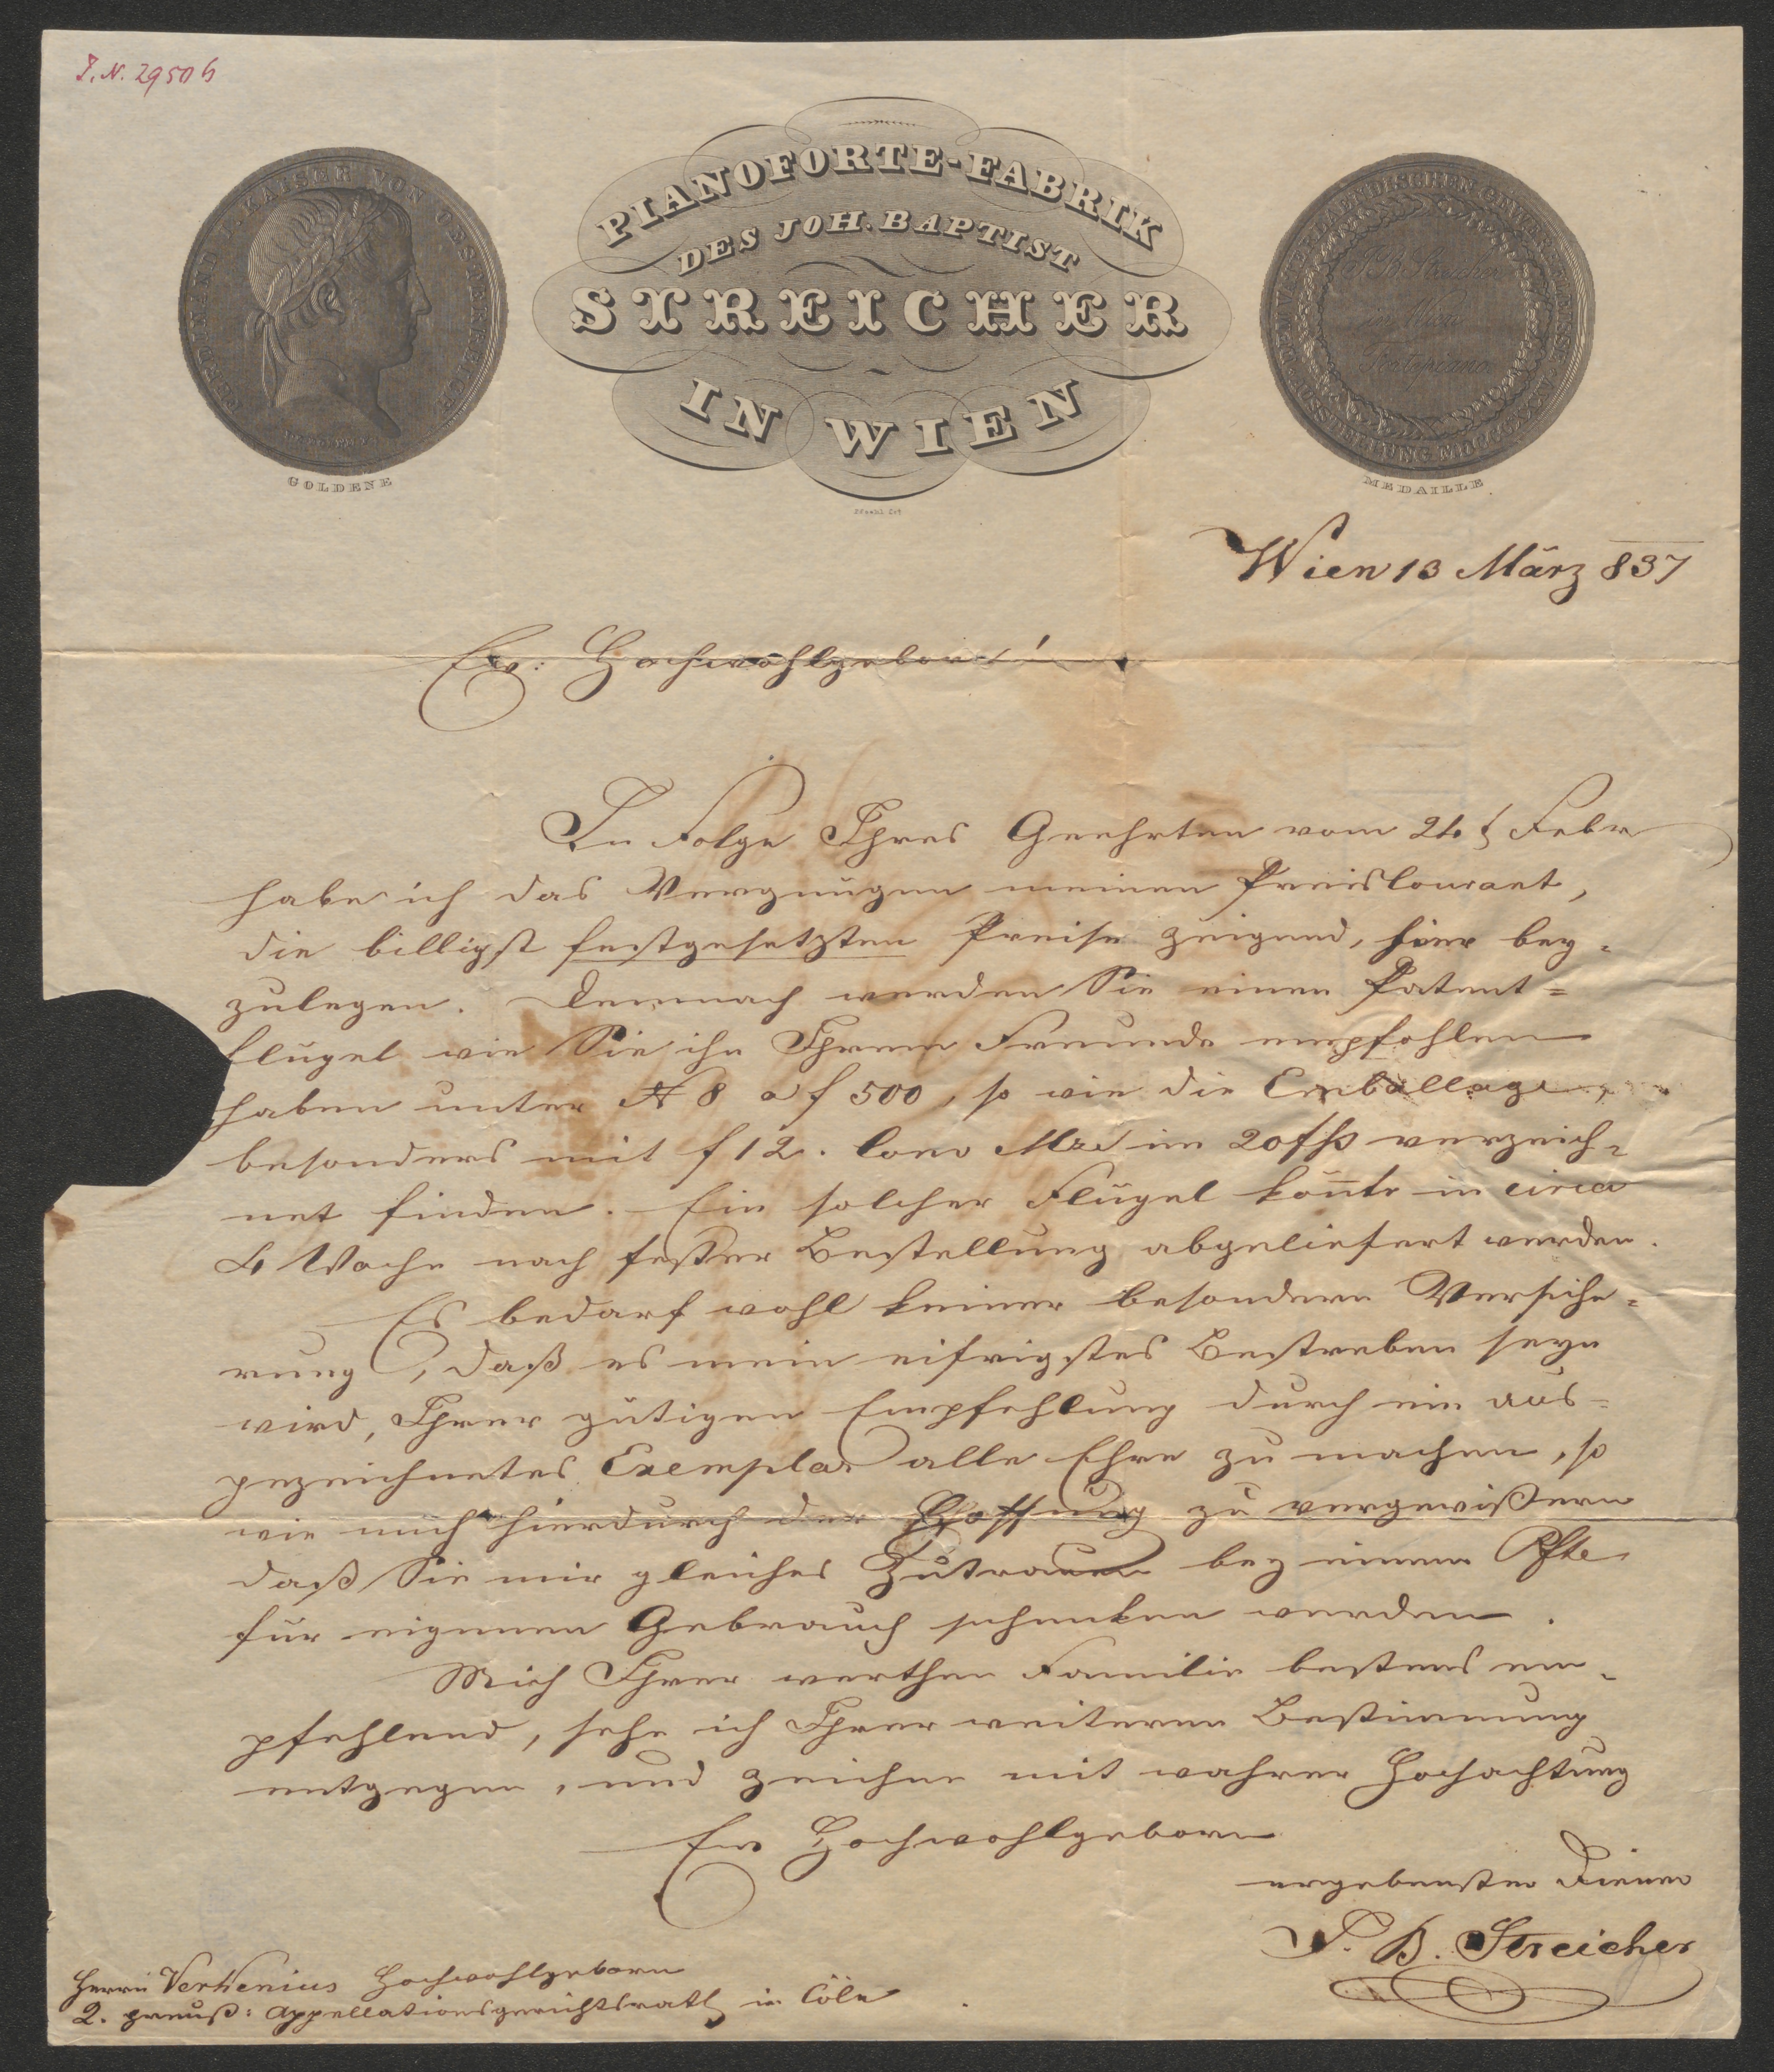 I. N. 29506
FERDINAND I. KAISER VON OESTERREICH
GOLDENE
PIANOFORTE-FABRIK
DES JOH. BAPTIST
STREICHER
IN WIEN
J. B. Streicher
in Wien
Fortepiano
MEDAILLE
Wien 13 März 837
Ew: Hochwohlgeborn!
In Folge Ihres Geehrten vom 24t Febr
habe ich das Vergnügen meinen Preiscourant,
die billigst festgesetzten Preise zeigend, hier bey-
zulegen. Demnach werden Sie einen Patent-
flügel wie Sie ihn Ihrem Freunde empfohlen
haben unter N 8 a f 500, so wie die Emballage
besonders mit f 12. Conv Mze im 20 fß verzeich-
net finden. Ein solcher Flügel könnte in circa
4 Woche nach fester Bestellung abgeliefert werden.
Es bedarf wohl keiner besondern Versiche-
rung, daß es mein eifrigstes Bestreben seyn
wird, Ihrer gütigen Empfehlung durch ein aus-
gezeichnetes Exemplar alle Ehre zu machen, so
wie mich hierdurch der Hoffnung zu vergewißern
daß Sie mir gleiches Zutrauen bey einem Pfte
für eigenen Gebrauch schenken werden.
Mich Ihrer werthen Familie bestens em-
pfehlend, sehe ich Ihrer weiteren Bestimmung
entgegen, und zeichne mit wahrer Hochachtung
Ew Hochwohlgeborn
ergebenster Diener
J. B. Streicher
Herrn Verkenius Hochwohlgeborn
K. preuß: Appellationsgerichtsrath in Cöln